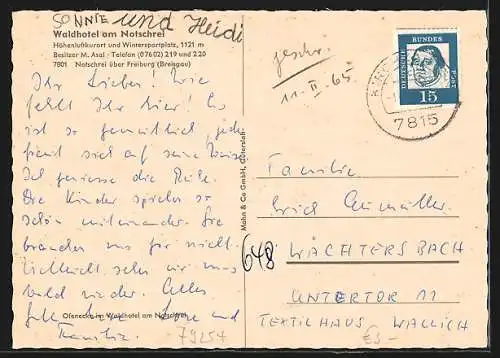 SONNTE und Heidi
Waldhotel am Notschrei
Höhenluftkurort und Wintersportplatz, 1121 m
Besitzer M. Asal · Telefon (07602) 219 und 220
7801 Notschrei über Freiburg (Breisgau)
Ihr Lieben! Wie
fehlt Ihr hier! Es
ist so gemütlich, jeder
freut sich auf seine Weise
Ich geniesse die Ruhe.
Die Kinder spielen so
schön miteinander. Sie
brauchen uns gar nicht.
Vielleicht sehen wir uns
bald wieder. Alles
Ofenecke im Waldhotel am Notschrei
und
Familie
79254
geschr.
11. II. 65
DEUTSCHE BUNDES POST
15
7815
Mohn & Co GmbH, Gütersloh
Familie
Erich
648
WÄCHTERSBACH
UNTERTOR 11
TEXTILHAUS WALLICH